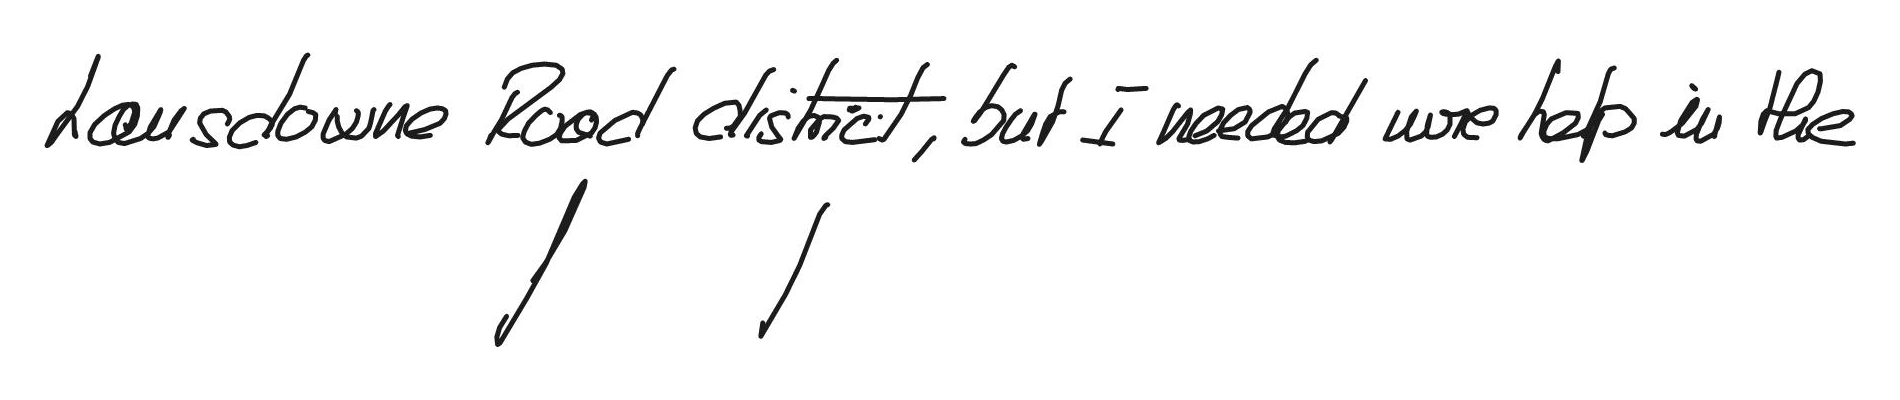 Lansdowne Road district, but I needed more help in the